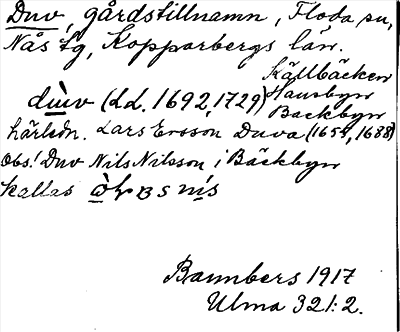 Duv, gårdstillnamn, Floda sn,
Nås tg, Kopparbergs län.
Källbäcken
Hansbyn
dùv (LL. 1692, 1729) Backbyn
härledn. Lars Ersson Duva (1654, 1688)
Obs! Duv Nils Nilsson i Bäckbyn
kallas
Bannbers 1917
Ulma 321:2.